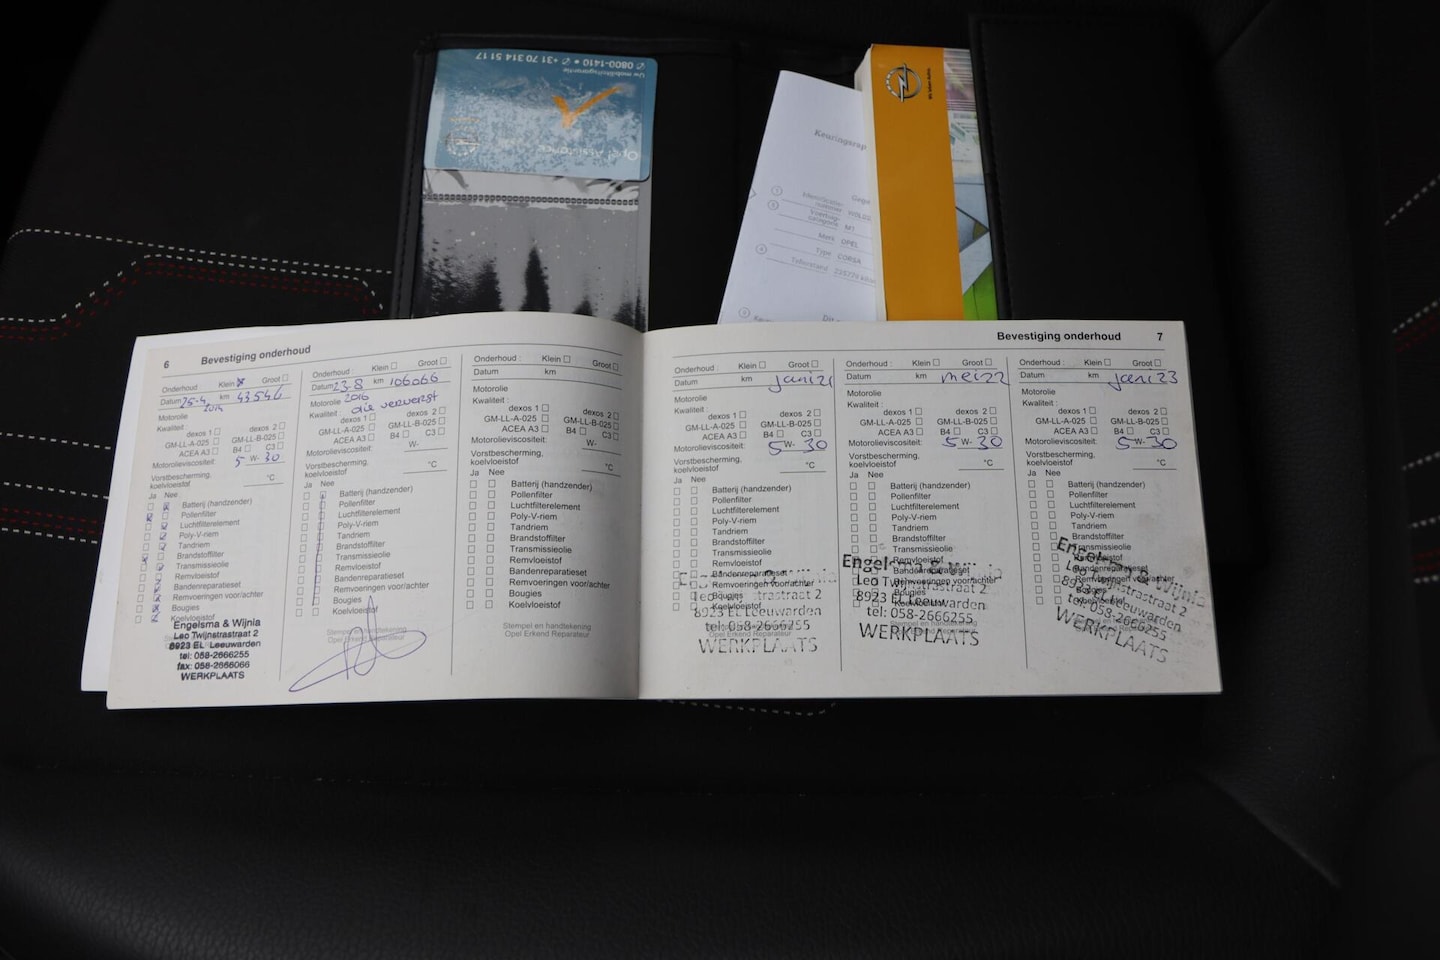 0800-1410 • +31 70 314 51 17
Uw mobiliteitsgarantie
Opel Assistance
Keuringsrap
Identificatie-
nummer
Voertuig-
categorie M1
Merk OPEL
Type CORSA
Tellerstand
6 Bevestiging onderhoud
Onderhoud Klein Groot
Datum 25-4 km 43546
2014
Motorolie
Kwaliteit :
dexos 1 dexos 2
GM-LL-A-025 GM-LL-B-025
ACEA A3 B4 C3
Motorolieviscositeit: 5 W- 30
Vorstbescherming,
koelvloeistof °C
Ja Nee
Batterij (handzender)
Pollenfilter
Luchtfilterelement
Poly-V-riem
Tandriem
Brandstoffilter
Transmissieolie
Remvloeistof
Bandenreparatieset
Remvoeringen voor/achter
Bougies
Koelvloeistof
Engelsma & Wijnia
Leo Twijnstrastraat 2
8923 EL Leeuwarden
tel: 058-2666255
fax: 058-2666066
WERKPLAATS
Onderhoud : Klein Groot
Datum 23-8 km 106066
Motorolie 2016
Kwaliteit : olie ververst
dexos 1 dexos 2
GM-LL-A-025 GM-LL-B-025
ACEA A3 B4 C3
Motorolieviscositeit: W-
Vorstbescherming,
koelvloeistof °C
Ja Nee
Batterij (handzender)
Pollenfilter
Luchtfilterelement
Poly-V-riem
Tandriem
Brandstoffilter
Transmissieolie
Remvloeistof
Bandenreparatieset
Remvoeringen voor/achter
Bougies
Koelvloeistof
Stempel en handtekening
Opel Erkend Reparateur
Onderhoud : Klein Groot
Datum km
Motorolie
Kwaliteit :
dexos 1 dexos 2
GM-LL-A-025 GM-LL-B-025
ACEA A3 B4 C3
Motorolieviscositeit: W-
Vorstbescherming,
koelvloeistof °C
Ja Nee
Batterij (handzender)
Pollenfilter
Luchtfilterelement
Poly-V-riem
Tandriem
Brandstoffilter
Transmissieolie
Remvloeistof
Bandenreparatieset
Remvoeringen voor/achter
Bougies
Koelvloeistof
Stempel en handtekening
Opel Erkend Reparateur
Bevestiging onderhoud 7
Onderhoud : Klein Groot
Datum km juni 21
Motorolie
Kwaliteit :
dexos 1 dexos 2
GM-LL-A-025 GM-LL-B-025
ACEA A3 B4 C3
Motorolieviscositeit: 5 W- 30
Vorstbescherming,
koelvloeistof °C
Ja Nee
Batterij (handzender)
Pollenfilter
Luchtfilterelement
Poly-V-riem
Tandriem
Brandstoffilter
Transmissieolie
Remvloeistof
Bandenreparatieset
Remvoeringen voor/achter
Bougies
Koelvloeistof
8923 EL Leeuwarden
tel: 058-2666255
Opel Erkend Reparateur
WERKPLAATS
Onderhoud : Klein Groot
Datum km mei 22
Motorolie
Kwaliteit :
dexos 1 dexos 2
GM-LL-A-025 GM-LL-B-025
ACEA A3 B4 C3
Motorolieviscositeit: 5 W- 30
Vorstbescherming,
koelvloeistof °C
Ja Nee
Batterij (handzender)
Pollenfilter
Luchtfilterelement
Poly-V-riem
Tandriem
Brandstoffilter
Transmissieolie
Remvloeistof
Bandenreparatieset
Remvoeringen voor/achter
Bougies
Koelvloeistof
Engelsma & Wijnia
Leo Twijnstrastraat 2
8923 EL Leeuwarden
tel: 058-2666255
WERKPLAATS
Onderhoud : Klein Groot
Datum km juni 23
Motorolie
Kwaliteit :
dexos 1 dexos 2
GM-LL-A-025 GM-LL-B-025
ACEA A3 B4 C3
Motorolieviscositeit: 5 W- 30
Vorstbescherming,
koelvloeistof °C
Ja Nee
Batterij (handzender)
Pollenfilter
Luchtfilterelement
Poly-V-riem
Tandriem
Brandstoffilter
Transmissieolie
Remvloeistof
Bandenreparatieset
Remvoeringen voor/achter
Bougies
Koelvloeistof
Engelsma & Wijnia
Leo Twijnstrastraat 2
8923 EL Leeuwarden
tel: 058-2666255
WERKPLAATS